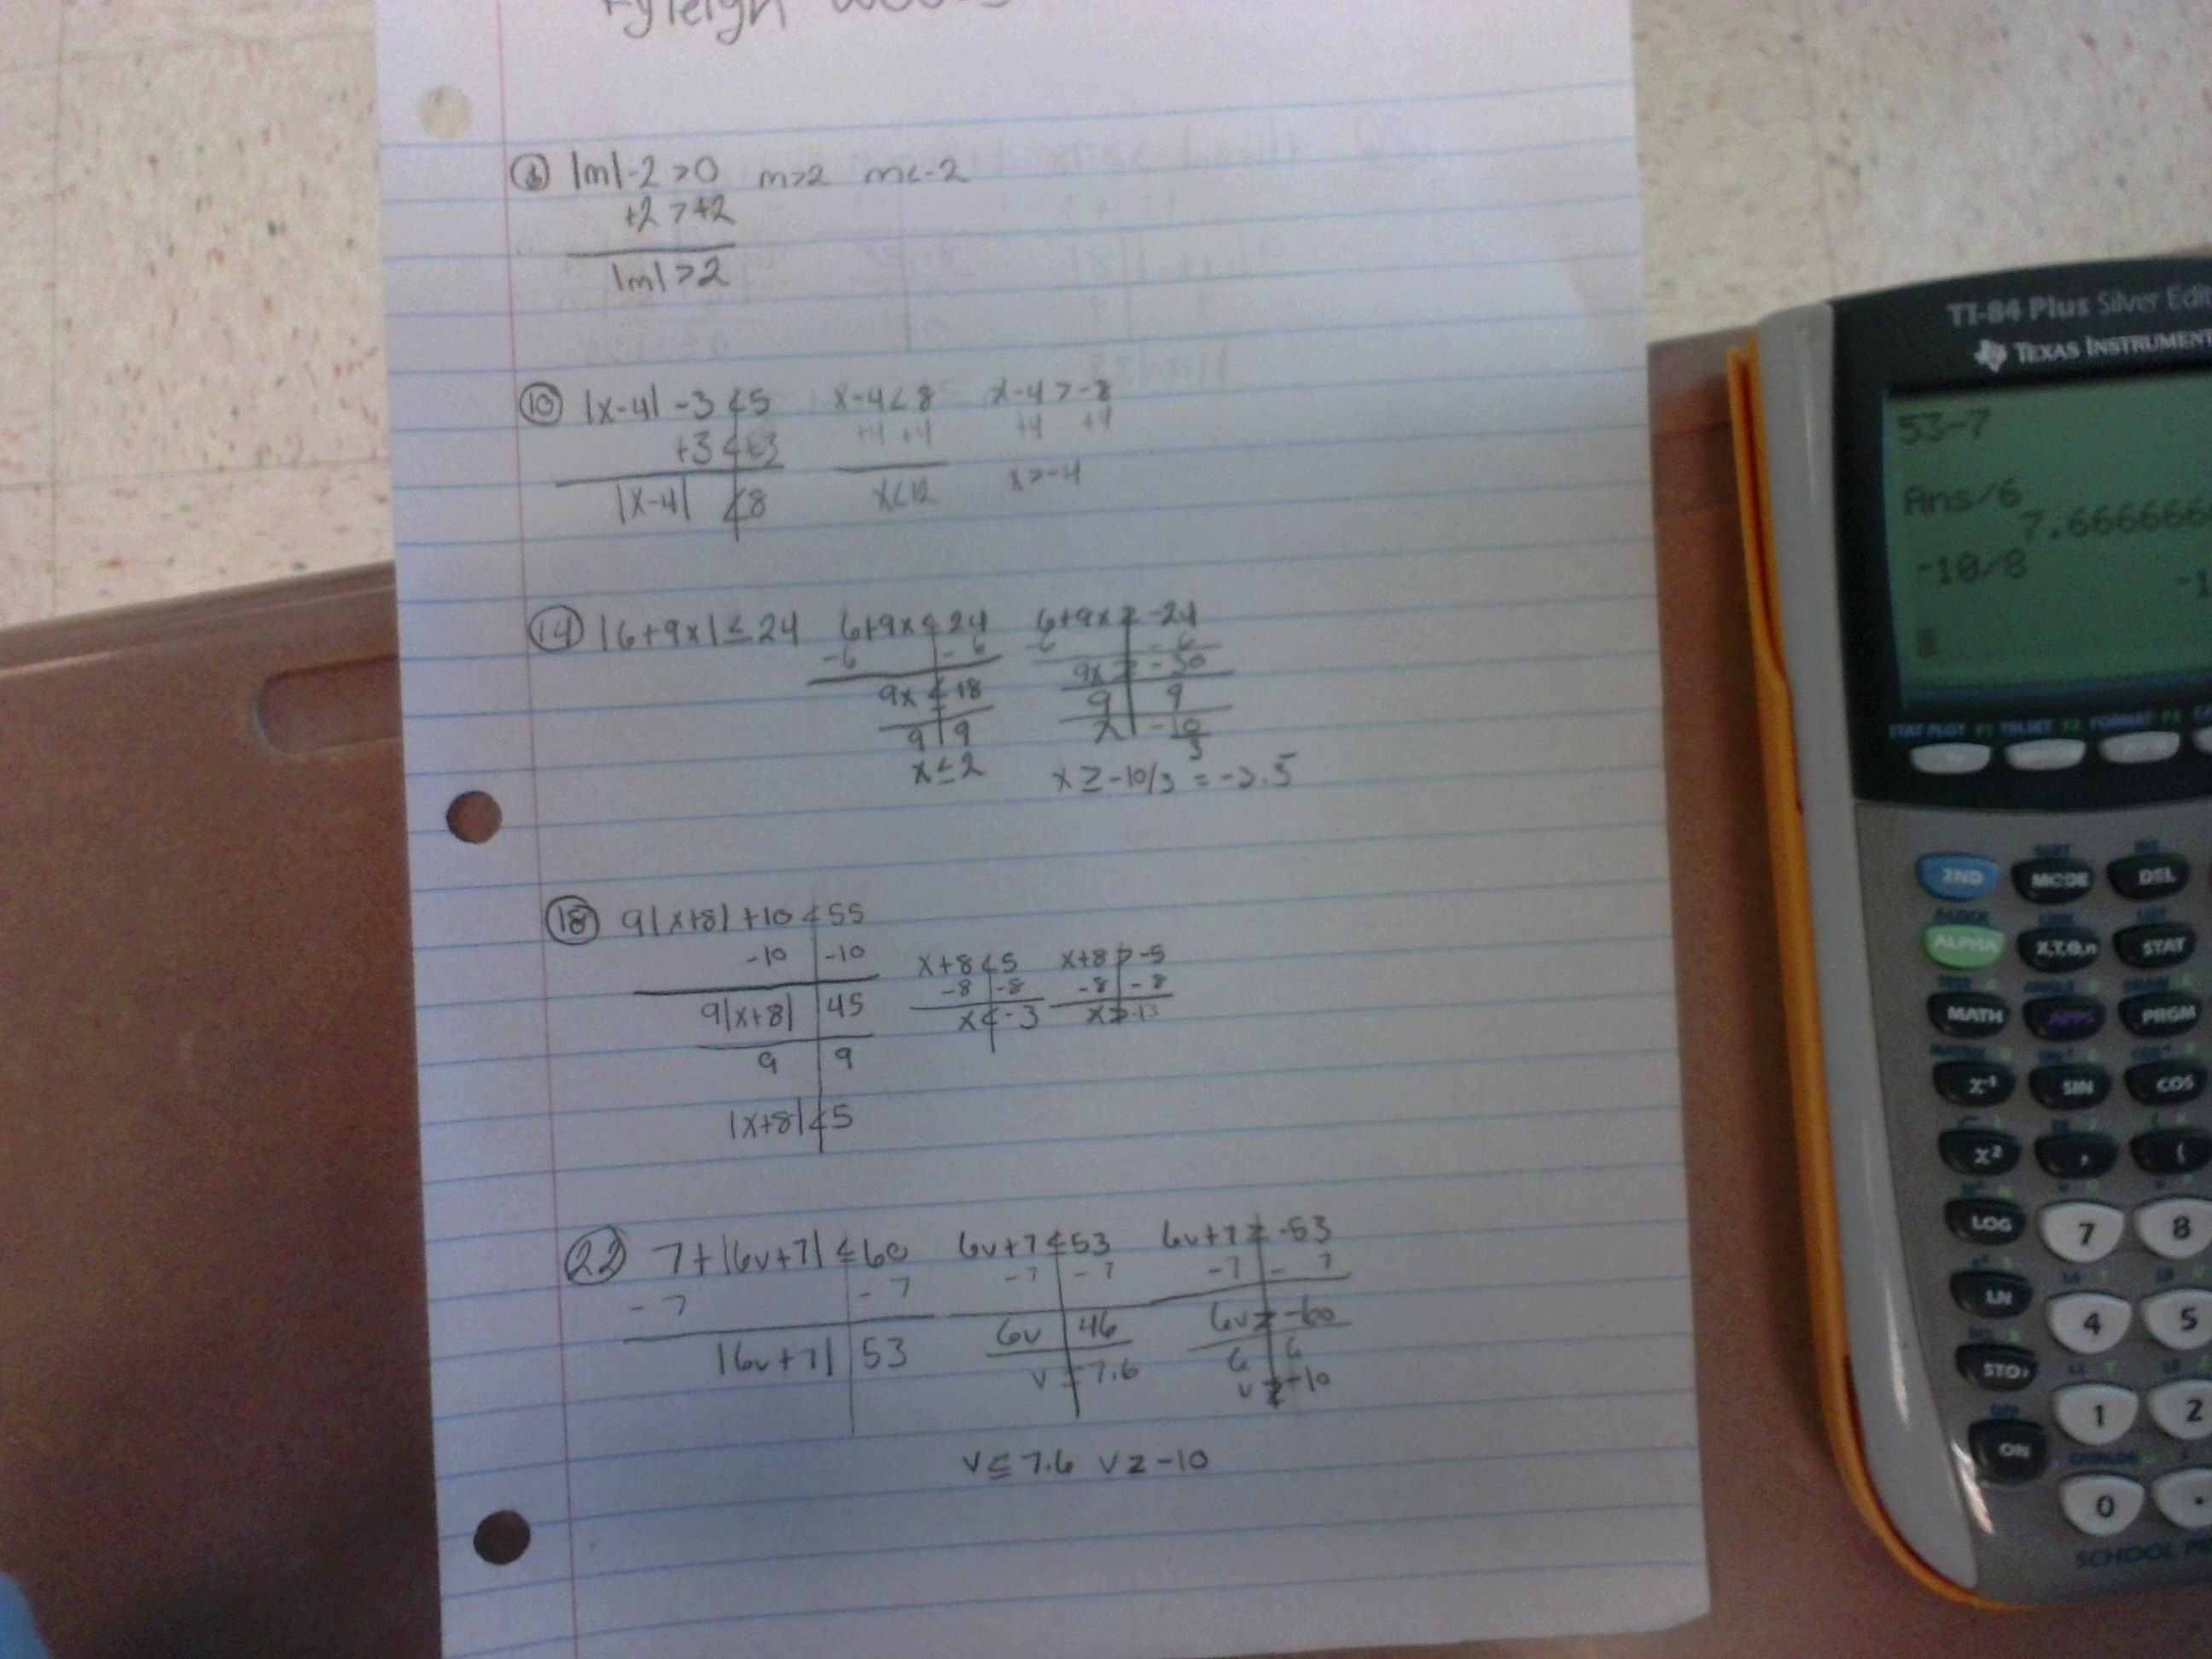 ⑥ |m|-2>0 m>2 m<-2
+2>+2
|m|>2
⑩ |x-4| -3<5 x-4<8 x-4>-8
+3<+3 +4 +4 +4 +4
|x-4| <8 x<12 x>-4
⑭ |6+9x|≤24 6+9x≤24 6+9x≥-24
-6 -6 -6 -6
9x≤18 9x≥-30
9 9 9 9
x≤2 x -10/3
x≥-10/3 = -3.5
⑱ 9|x+8|+10<55
-10 -10 x+8<5 x+8>-5
-8 -8 -8 -8
9|x+8| 45 x<-3 x>-13
9 9
|x+8|<5
㉒ 7+|6v+7|≤60 6v+7≤53 6v+7≥-53
-7 -7 -7 -7 -7 -7
|6v+7| 53 6v 46 6v≥-60
6 6
v≤7.6 v≥-10
v≤7.6 v≥-10
TI-84 Plus Silver
TEXAS INSTRUMENT
53-7
Ans/6
7.666666
-10/8
-1
STAT PLOT F1 TBLSET F2 FORMAT F3
2ND MODE DEL
ALPHA X,T,θ,n STAT
MATH APPS PRGM
x⁻¹ SIN COS
x² , (
LOG 7 8
LN 4 5
STO› 1 2
ON 0 .
SCHOOL